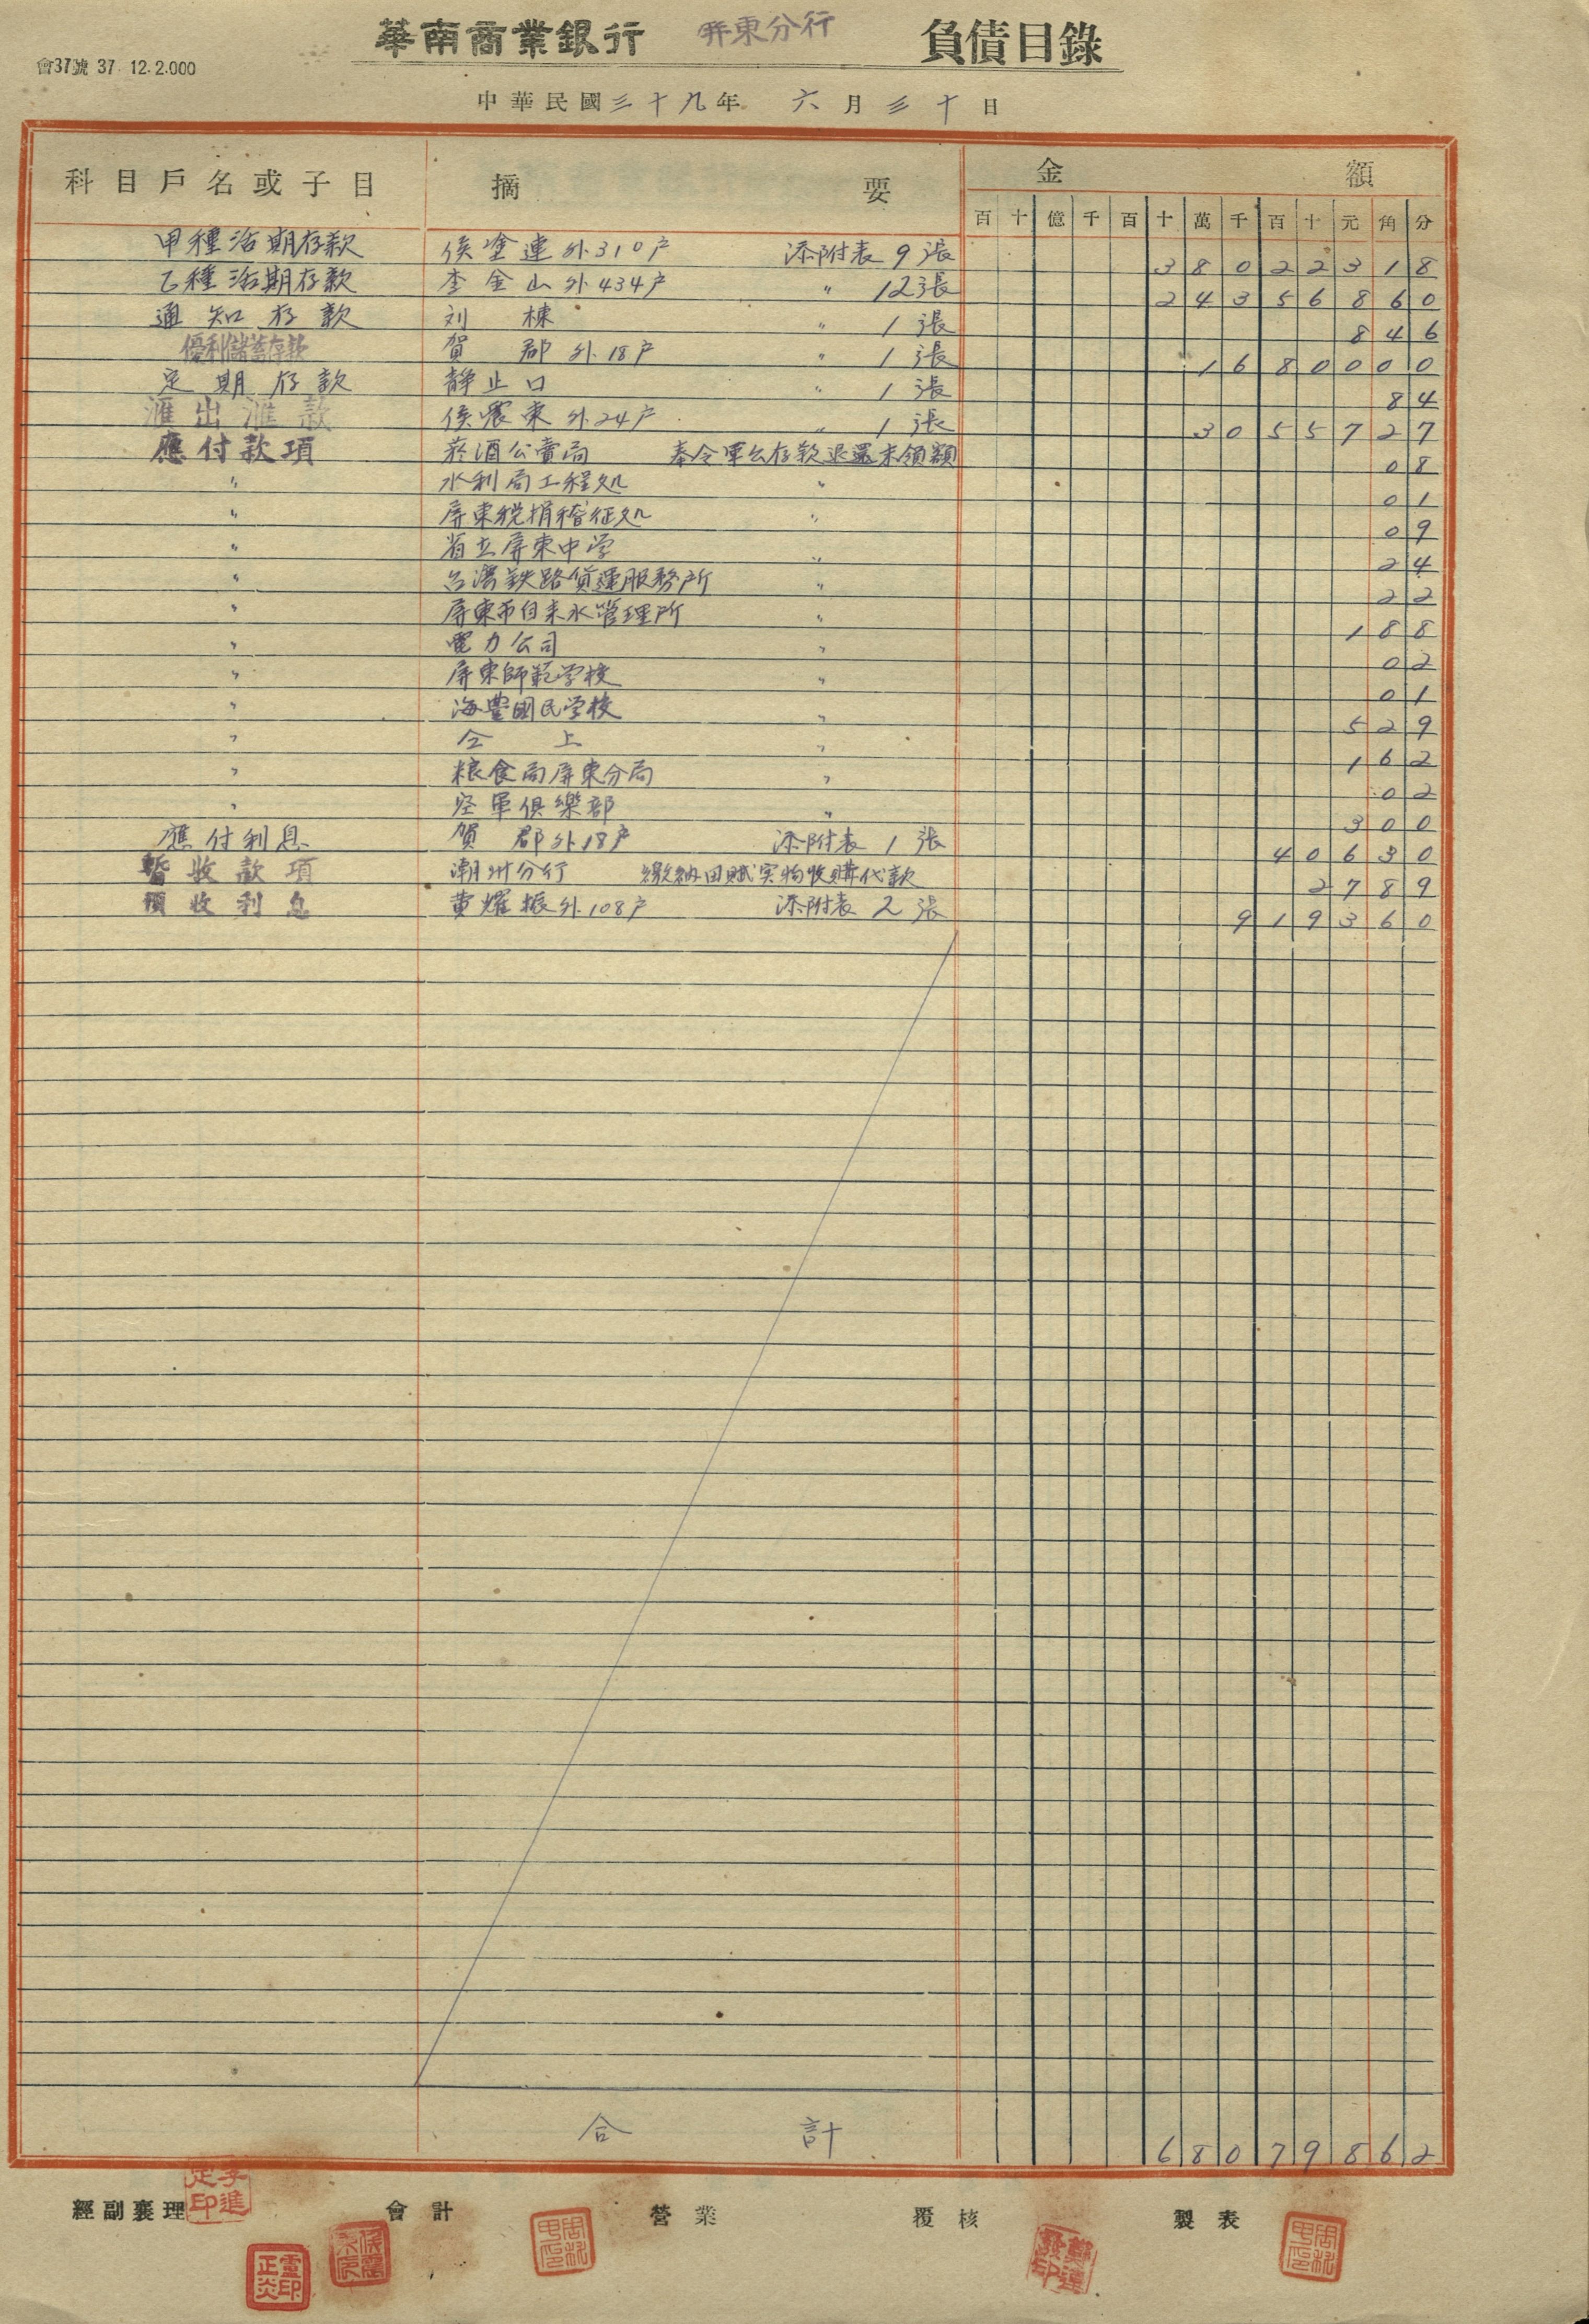 華南商業銀行 屏東分行 負債目錄
會37號 37. 12. 2.000
中華民國三十九年 六月三十日
科目戶名或子目 摘要 金額
百 十 億 千 百 十 萬 千 百 十 元 角 分
甲種活期存款 侯金連外310户 添附表 9張 38022318
乙種活期存款 李金山外434户 〃 12張 24356860
通知存款 刘棟 〃 1張 846
優利儲蓄存款 賀郡外18户 〃 1張 1680000
定期存款 静止口 〃 1張 84
滙出滙款 侯震東外24户 〃 1張 3055727
應付款項 菸酒公賣局 奉令軍公存款退還未領額 08
〃 水利局工程処 〃 01
〃 屏東税捐稽征処 〃 09
〃 省立屏東中学 〃 24
〃 台湾鉄路貨運服務所 〃 22
〃 屏東市自来水管理所 〃 188
〃 電力公司 〃 02
〃 屏東師範学校 〃 01
〃 海豊國民学校 〃 529
〃 仝上 〃 162
〃 粮食局屏東分局 〃 02
〃 空軍俱樂部 〃 300
應付利息 賀郡外18户 添附表 1張 40630
暫收款項 潮州分行 繳納田賦実物收購代款 2789
預收利息 黄燿振外108户 添附表 2張 919360
合計 68079862
經副襄理 會計 營業 覆核 製表